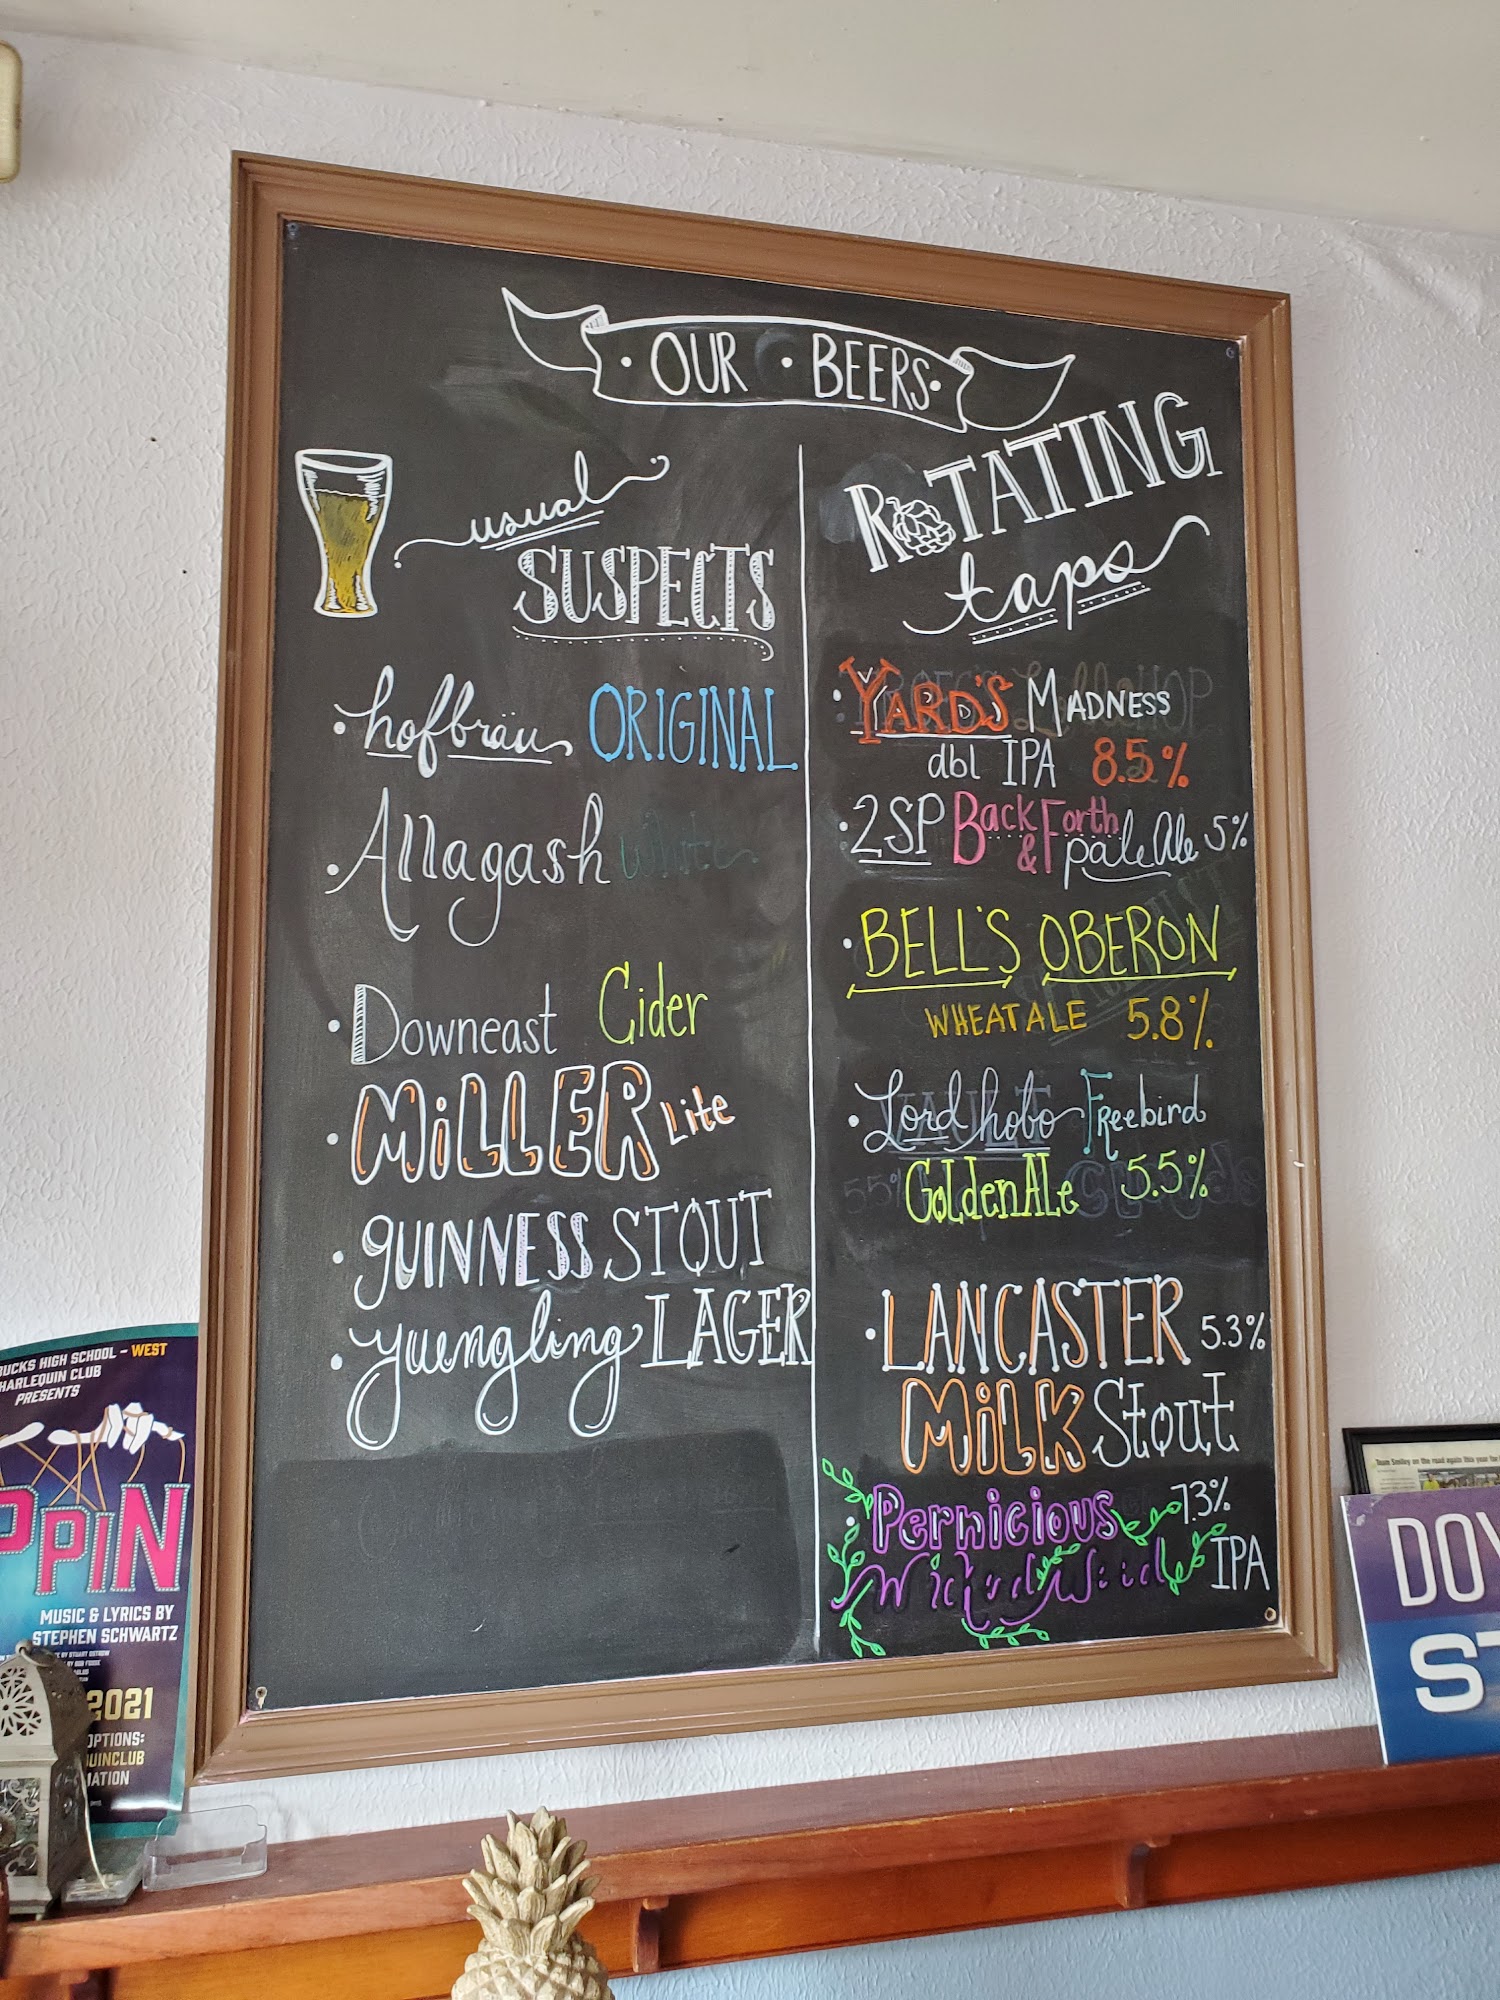 OUR • BEERS •
usual
SUSPECTS
• hofbräu ORIGINAL
• Allagash White
• Downeast Cider
• MiLLER Lite
• GUINNESS STOUT
• yuengling LAGER
ROTATING
taps
• YARD'S MADNESS
dbl IPA 8.5%
• 2SP Back & Forth pale Ale 5%
• BELL'S OBERON
WHEAT ALE 5.8%
• Lord hobo Freebird
Golden Ale 5.5%
• LANCASTER 5.3%
MiLK Stout
• Pernicious 7.3%
Wicked Weed IPA
BUCKS HIGH SCHOOL - WEST
HARLEQUIN CLUB
PRESENTS
PPiN
MUSIC & LYRICS BY
STEPHEN SCHWARTZ
2021
OPTIONS:
Team Smiley on the road again this year for
DOY
ST